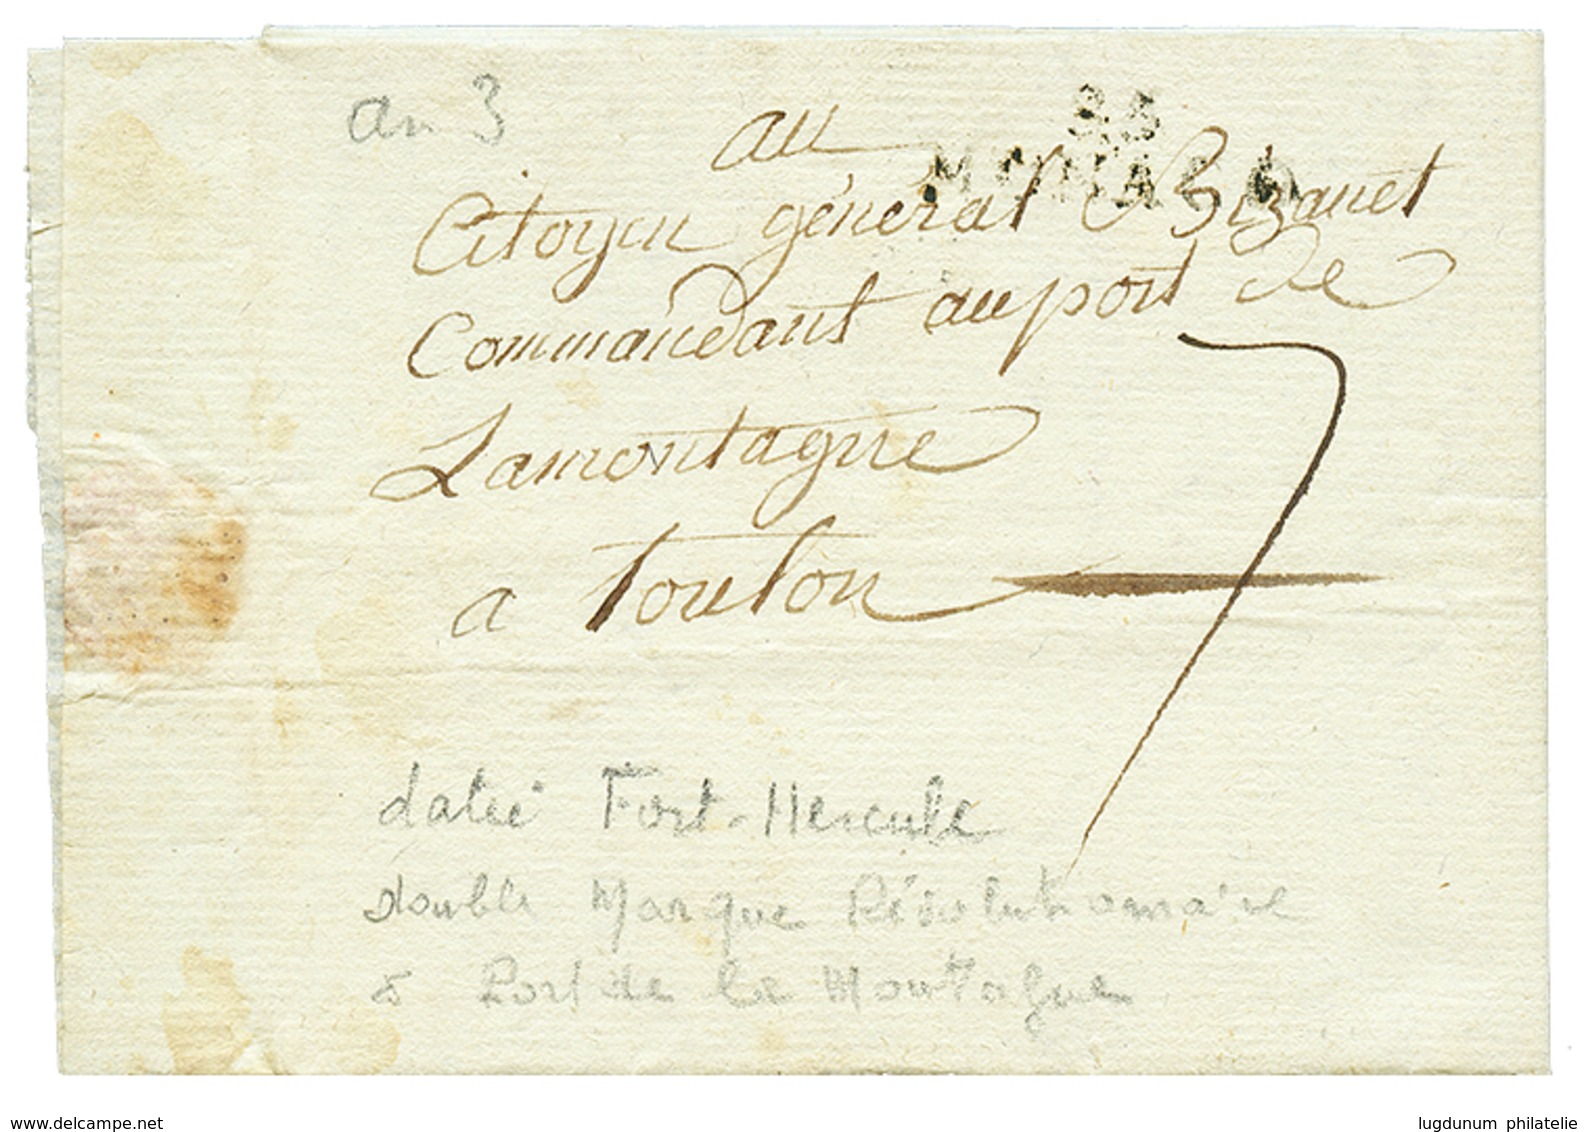 an 3
85
MONACO
au
Citoyen général Bizanet
Commandant au port de
Lamontagne
a Toulon
7
daté Fort-Hercule
double Marque Révolutionnaire
& Port de la Montagne
www.delcampe.net
lugdunum philatelie